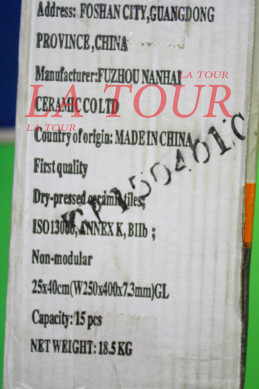 Address: FOSHAN CITY,GUANGDONG
PROVINCE,CHINA
Manufacturer:FUZHOU NANHAI
LA TOUR
CERAMIC CO LTD
LA TOUR
LA TOUR
Country of origin: MADE IN CHINA
First quality
Dry-pressed ceramic tiles;
ISO13006, ANNEX K, BIIb ;
Non-modular
25x40cm(W250x400x7.3mm)GL
Capacity: 15 pcs
NET WEIGHT: 18.5 KG